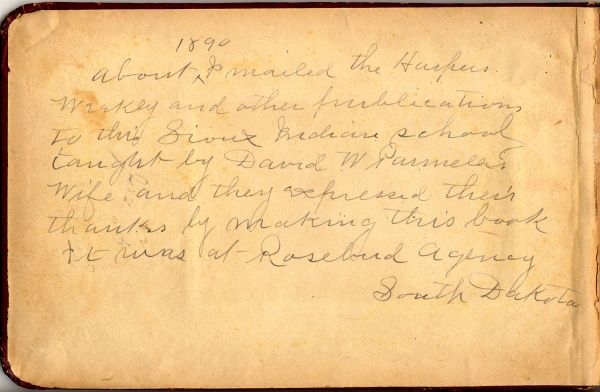 1890
About ^ I mailed the Harpers
Weakley and other publications
to this Sioux Indian school
taught by David W Parmelas
Wife and they expressed their
thanks by making this book
It was at Rosebud Agency
South Dakota